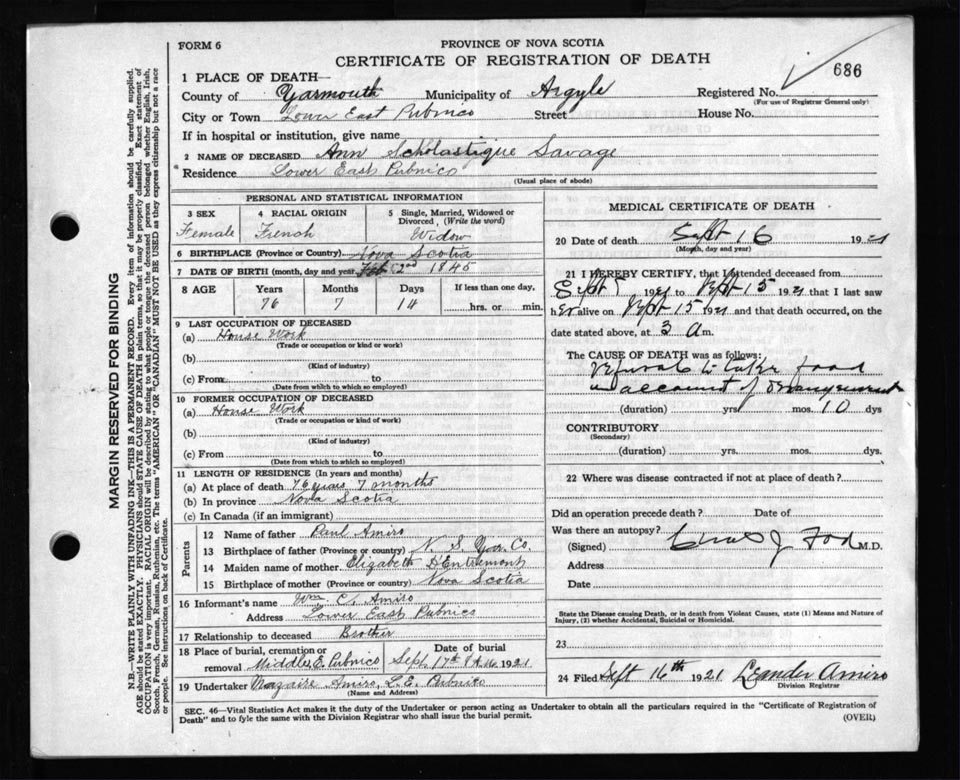 FORM 6
PROVINCE OF NOVA SCOTIA
CERTIFICATE OF REGISTRATION OF DEATH
686
1 PLACE OF DEATH—
County of Yarmouth Municipality of Argyle Registered No.
(For use of Registrar General only)
City or Town Lower East Pubnico Street House No.
If in hospital or institution, give name
2 NAME OF DECEASED Ann Scholastique Savage
Residence Lower East Pubnico
(Usual place of abode)
PERSONAL AND STATISTICAL INFORMATION
3 SEX 4 RACIAL ORIGIN 5 Single, Married, Widowed or Divorced, (Write the word)
Female French Widow
6 BIRTHPLACE (Province or Country) Nova Scotia
7 DATE OF BIRTH (month, day and year) Feb 2nd 1845
8 AGE Years Months Days If less than one day,
76 7 14 hrs. or min.
9 LAST OCCUPATION OF DECEASED
(a) House Work
(Trade or occupation or kind or work)
(b)
(Kind of industry)
(c) From to
(Date from which to which so employed)
10 FORMER OCCUPATION OF DECEASED
(a) House Work
(Trade or occupation or kind of work)
(b)
(Kind of industry)
(c) From to
(Date from which to which so employed)
11 LENGTH OF RESIDENCE (In years and months)
(a) At place of death 76 years 7 months
(b) In province Nova Scotia
(c) In Canada (if an immigrant)
Parents
12 Name of father Paul Amiro
13 Birthplace of father (Province or country) N. S. Yar. Co.
14 Maiden name of mother Elizabeth D'Entremont
15 Birthplace of mother (Province or country) Nova Scotia
16 Informant's name Wm. C. Amiro
Address Lower East Pubnico
17 Relationship to deceased Brother
18 Place of burial, cremation or removal Date of burial
Middle E. Pubnico Sept. 17th 1921
19 Undertaker Nazaire Amiro, L. E. Pubnico
(Name and Address)
MEDICAL CERTIFICATE OF DEATH
20 Date of death Sept 16 1921
(Month, day and year)
21 I HEREBY CERTIFY, that I attended deceased from
Sept 5 1921 to Sept 15 1921 that I last saw
her alive on Sept 15 1921 and that death occurred, on the
date stated above, at 3 a m.
The CAUSE OF DEATH was as follows:
Refusal to take food
on account of derangement
(duration) yrs. mos. 10 dys
CONTRIBUTORY
(Secondary)
(duration) yrs. mos. dys.
22 Where was disease contracted if not at place of death?
Did an operation precede death? Date of
Was there an autopsy?
(Signed) Chas J Fox M.D.
Address
Date
State the Disease causing Death, or in death from Violent Causes, state (1) Means and Nature of
Injury, (2) whether Accidental, Suicidal or Homicidal.
23
24 Filed Sept 16th 1921 Leander Amiro
Division Registrar
SEC. 46—Vital Statistics Act makes it the duty of the Undertaker or person acting as Undertaker to obtain all the particulars required in the "Certificate of Registration of
Death" and to fyle the same with the Division Registrar who shall issue the burial permit.
(OVER)
MARGIN RESERVED FOR BINDING
N.B.—WRITE PLAINLY WITH UNFADING INK—THIS IS A PERMANENT RECORD. Every item of information should be carefully supplied.
AGE should be stated EXACTLY. PHYSICIANS should STATE CAUSE OF DEATH in plain terms, so that it may be properly classified. Exact statement of
OCCUPATION is very important. RACIAL ORIGIN will be described by stating to what people or tongue the deceased person belonged whether English, Irish,
Scotch, French, German, Russian, Ruthenian, etc. The terms "AMERICAN" OR "CANADIAN" MUST NOT BE USED as they express citizenship but not a race
or people. See instructions on back of Certificate.